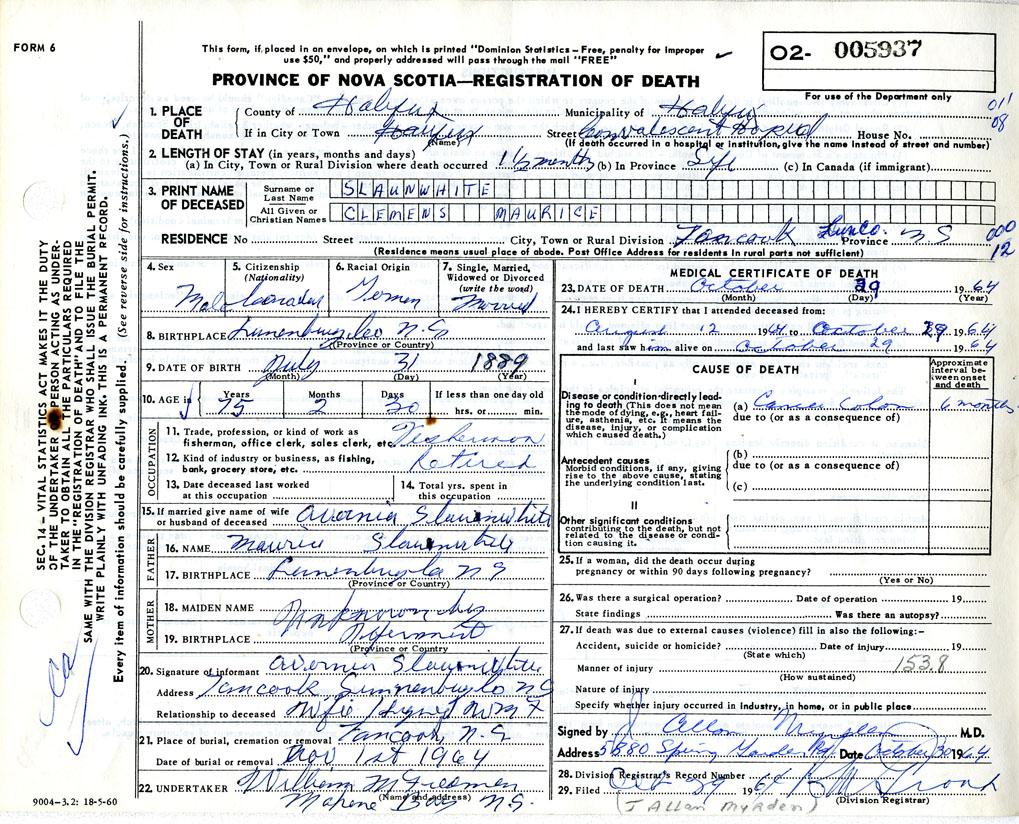 FORM 6
This form, if placed in an envelope, on which is printed "Dominion Statistics – Free, penalty for improper
use $50," and properly addressed will pass through the mail "FREE"
PROVINCE OF NOVA SCOTIA—REGISTRATION OF DEATH
O2- 005937
For use of the Department only
1. PLACE OF DEATH County of Halifax Municipality of Halifax 011
If in City or Town Halifax (Name) Street Convalescent Hospital House No. 08
(If death occurred in a hospital or institution, give the name instead of street and number)
2. LENGTH OF STAY (in years, months and days)
(a) In City, Town or Rural Division where death occurred 1 1/2 months (b) In Province Life (c) In Canada (if immigrant)
3. PRINT NAME OF DECEASED
Surname or Last Name SLAUNWHITE
All Given or Christian Names CLEMENS MAURICE
RESIDENCE No Street City, Town or Rural Division Tancook Lun Co. Province N S 000
(Residence means usual place of abode. Post Office Address for residents in rural parts not sufficient) 12
4. Sex Male
5. Citizenship (Nationality) Canadian
6. Racial Origin German
7. Single, Married, Widowed or Divorced (write the word) Married
8. BIRTHPLACE Lunenburg Co N.S (Province or Country)
9. DATE OF BIRTH July (Month) 31 (Day) 1889 (Year)
10. AGE in Years 75 Months 2 Days 30 If less than one day old hrs. or min.
OCCUPATION
11. Trade, profession, or kind of work as fisherman, office clerk, sales clerk, etc. Fisherman
12. Kind of industry or business, as fishing, bank, grocery store, etc. Retired
13. Date deceased last worked at this occupation
14. Total yrs. spent in this occupation
15. If married give name of wife or husband of deceased Avernia Slaunwhite
FATHER
16. NAME Maurice Slaunwhite
17. BIRTHPLACE Lunenburg Co N S (Province or Country)
MOTHER
18. MAIDEN NAME Unknown by
19. BIRTHPLACE Informant (Province or Country)
20. Signature of informant Avernia Slaunwhite
Address Tancook Lunenburg Co N S
Relationship to deceased Wife
21. Place of burial, cremation or removal Tancook N.S
Date of burial or removal Nov 1st 1964
22. UNDERTAKER William
(Name and address) N.S.
9004-3.2: 18-5-60
SEC. 14 – VITAL STATISTICS ACT MAKES IT THE DUTY
OF THE UNDERTAKER OR PERSON ACTING AS UNDER-
TAKER TO OBTAIN ALL THE PARTICULARS REQUIRED
IN THE "REGISTRATION OF DEATH" AND TO FILE THE
SAME WITH THE DIVISION REGISTRAR WHO SHALL ISSUE THE BURIAL PERMIT.
WRITE PLAINLY WITH UNFADING INK. THIS IS A PERMANENT RECORD.
Every item of information should be carefully supplied. (See reverse side for instructions.)
MEDICAL CERTIFICATE OF DEATH
23. DATE OF DEATH October (Month) 29 (Day) 1964 (Year)
24. I HEREBY CERTIFY that I attended deceased from:
August 12 1964 to October 29 1964
and last saw him alive on October 29 1964
CAUSE OF DEATH
Approximate interval between onset and death
I
Disease or condition directly leading to death (This does not mean the mode of dying, e.g., heart failure, asthenia, etc. It means the disease, injury, or complication which caused death.)
(a) Cancer Colon 6 months
due to (or as a consequence of)
Antecedent causes
Morbid conditions, if any, giving rise to the above cause, stating the underlying condition last.
(b)
due to (or as a consequence of)
(c)
II
Other significant conditions
contributing to the death, but not related to the disease or condition causing it.
25. If a woman, did the death occur during
pregnancy or within 90 days following pregnancy?
(Yes or No)
26. Was there a surgical operation? Date of operation 19
State findings Was there an autopsy?
27. If death was due to external causes (violence) fill in also the following:–
Accident, suicide or homicide? Date of injury 19
(State which)
Manner of injury 153.8
(How sustained)
Nature of injury
Specify whether injury occurred in industry, in home, or in public place
Signed by J Allan Myrden M.D.
Address 5880 Spring Garden Rd. Date October 30 1964
28. Division Registrar's Record Number
29. Filed Oct 29 1964
(J Allan Myrden) (Division Registrar)